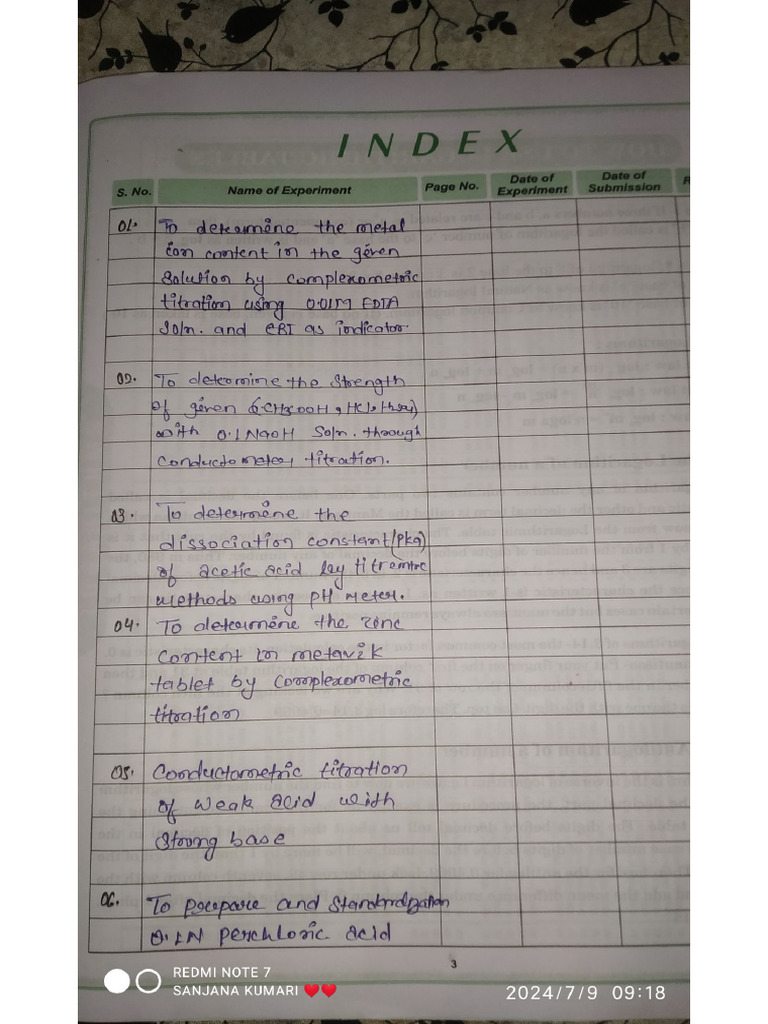 INDEX
S. No. Name of Experiment Page No. Date of Experiment Date of Submission R
01. To determine the metal
ion content in the given
solution by complexometric
titration using 0.01M EDTA
Soln. and EBT as indicator.
02. To determine the strength
of given CH3COOH, HCl,
with 0.1 NaOH Soln. through
conductometry titration.
03. To determine the
dissociation constant (Pka)
of acetic acid by
methods using pH meter.
04. To determine the zinc
content in metavik
tablet by complexometric
titration
05. Conductometric titration
of weak acid with
strong base
06. To prepare and
0.1N perchloric acid
3
REDMI NOTE 7
SANJANA KUMARI ❤❤
2024/7/9 09:18